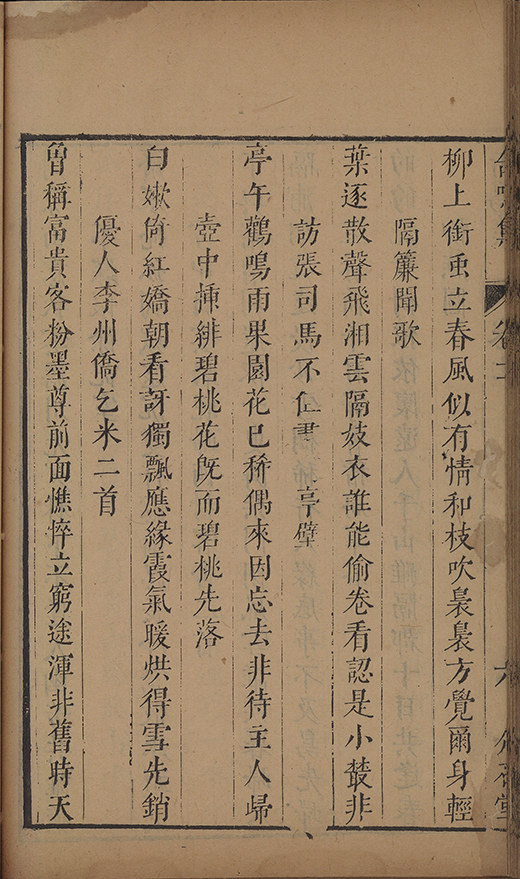 柳上銜虫立春風似有情和枝吹裊裊方覺爾身輕
隔簾聞歌
葉逐散聲飛湘雲隔妓衣誰能偷卷看認是小叢非
訪張司馬不值書亭壁
亭午鸛鳴雨果園花已稀偶來因忘去非待主人歸
壺中揷緋碧桃花旣而碧桃先落
白嫰倚紅嬌朝看訝獨飄應緣霞氣暖烘得雪先銷
優人李州僑乞米二首
曾稱富貴客粉墨尊前面憔悴立窮途渾非舊時天